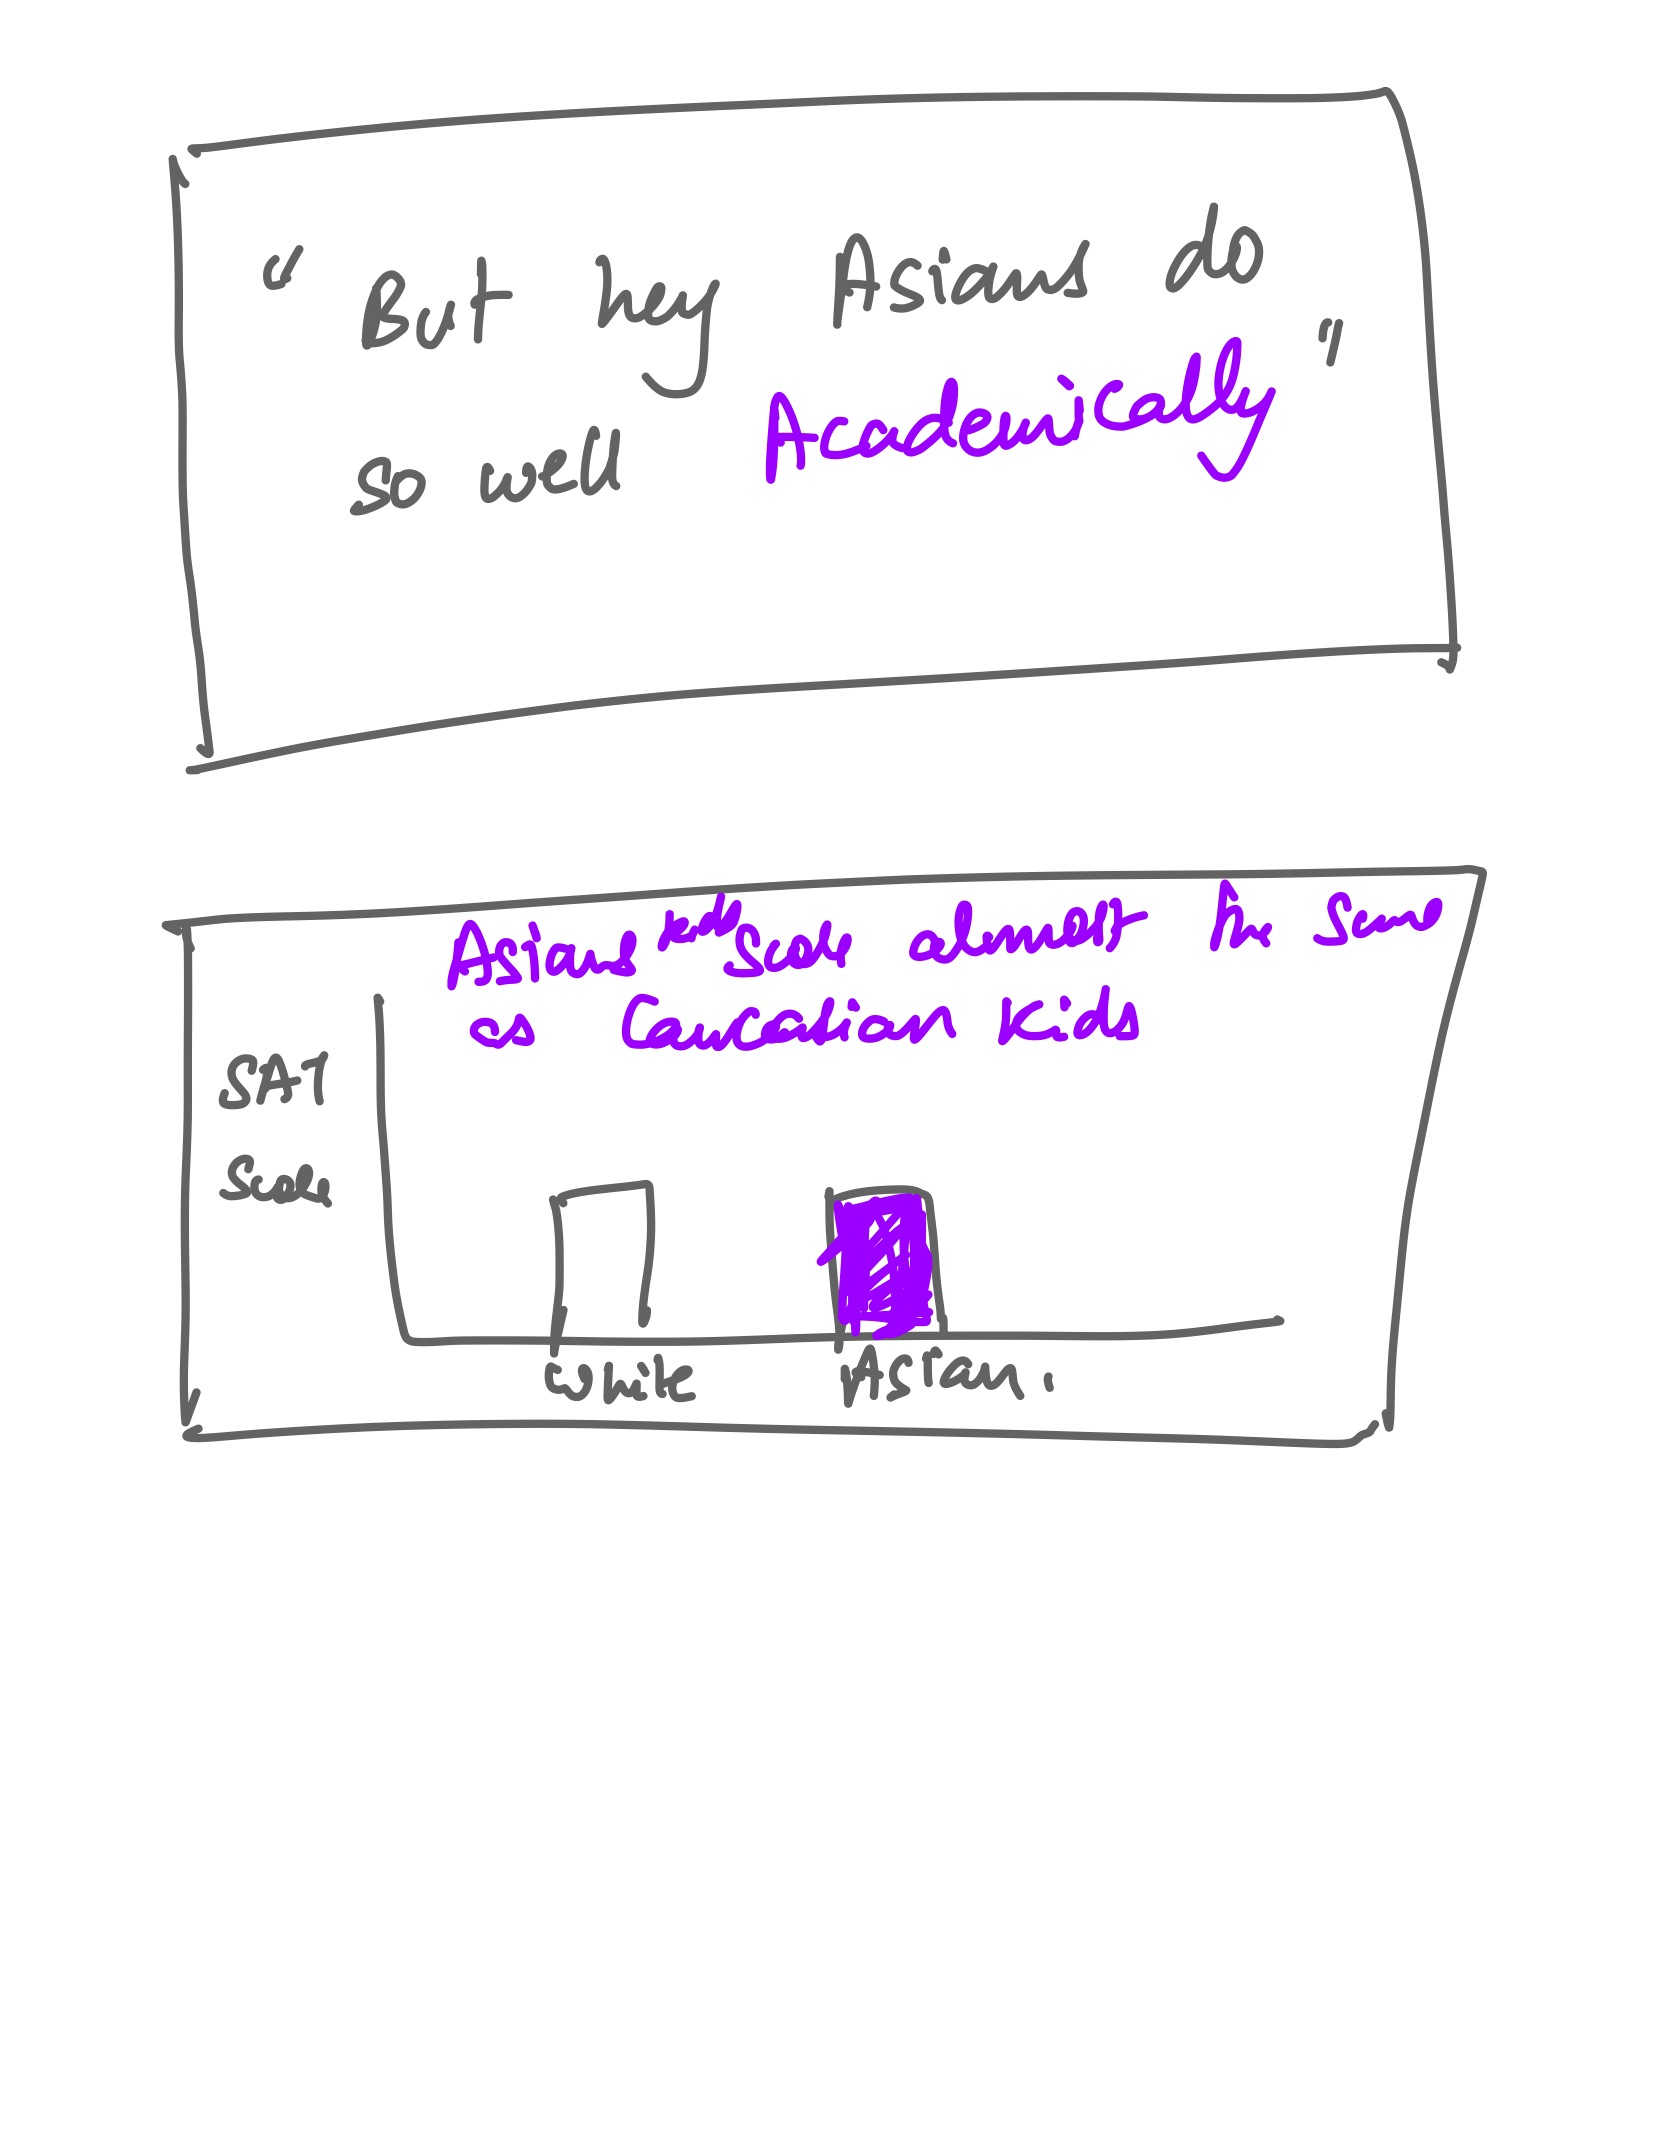 "But hey Asians do
so well Academically"
Asians kids Score almost the same
as Caucasian Kids
SAT
Score
White
Asian.